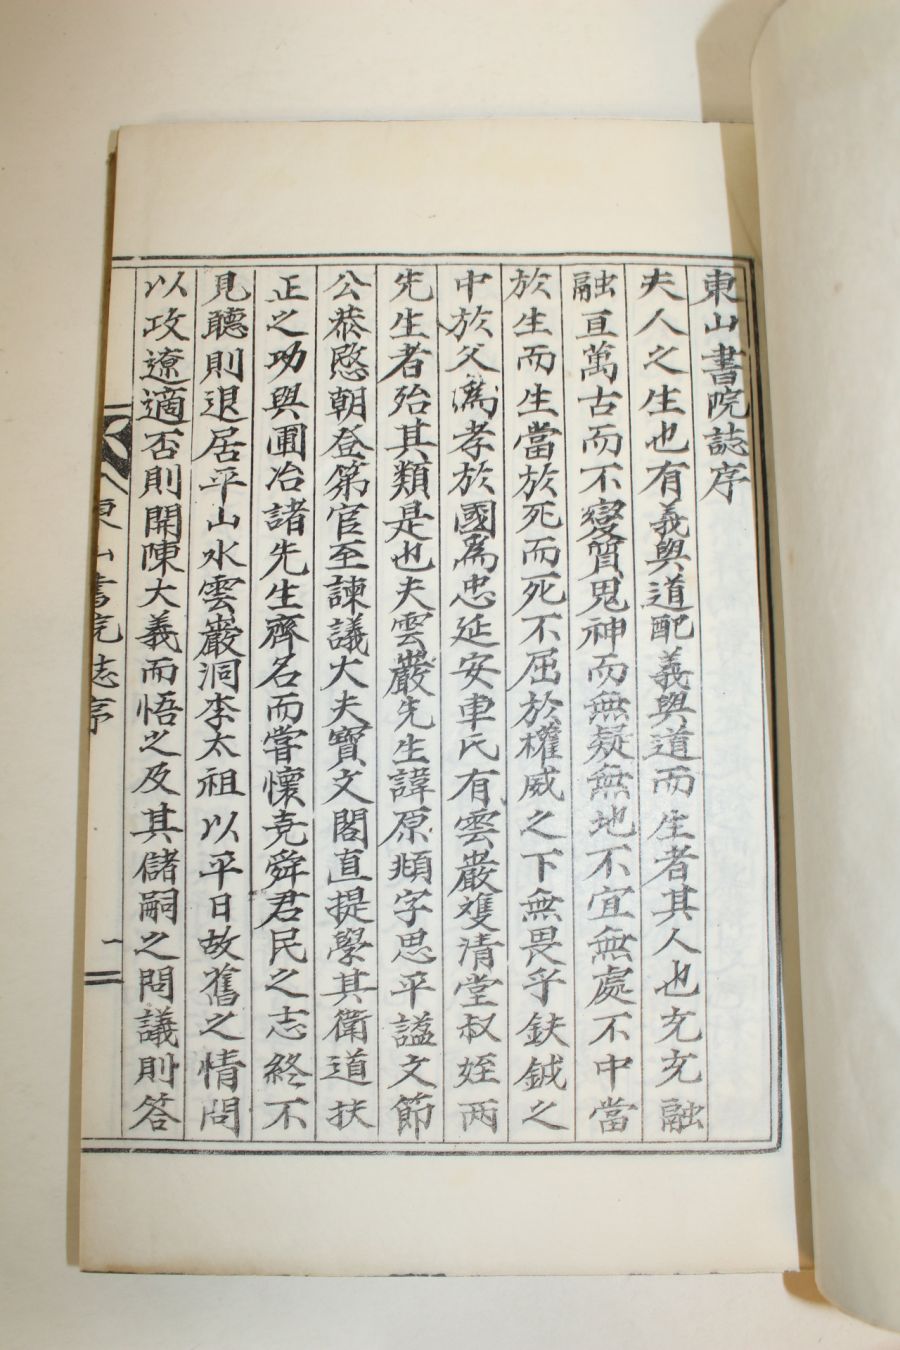 東山書院誌序
夫人之生也有義與道配義與道而生者其人也充充融
融亘萬古而不變質鬼神而無疑無地不宜無處不中當
於生而生當於死而死不屈於權威之下無畏乎鈇鉞之
中於父爲孝於國爲忠延安車氏有雲巖雙淸堂叔姪兩
先生者殆其類是也夫雲巖先生諱原頫字思平謚文節
公恭愍朝登第官至諫議大夫寶文閣直提學其衛道扶
正之功與圃冶諸先生齊名而嘗懷堯舜君民之志終不
見聽則退居平山水雲巖洞李太祖以平日故舊之情問
以政遼適否則開陳大義而悟之及其儲嗣之問議則答
東山書院志序
一